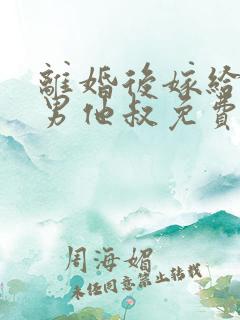 離婚後嫁給
男他叔免費
周海媚
未经同意禁止转载